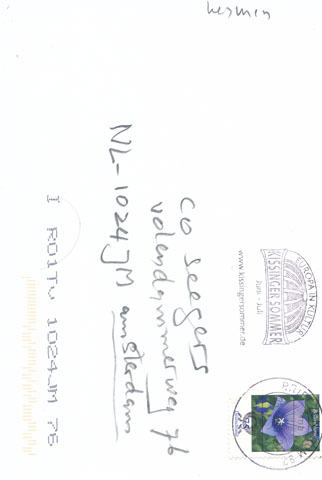 EUROPA IN KULTUR
KISSINGER SOMMER
Juni - Juli
www.kissingersommer.de
hermin
CO Seegers
volendammerweg 76
NL-1024JM amsterdam
I RO1Tv 1024JM 76